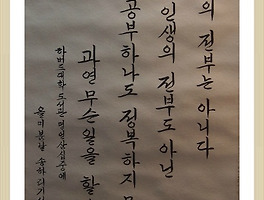 의 전부는 아니다
인생의 전부도 아닌
공부 하나도 정복하지 못
과연 무슨 일을 할
하버드대학 도서관 명언 삼십 중에